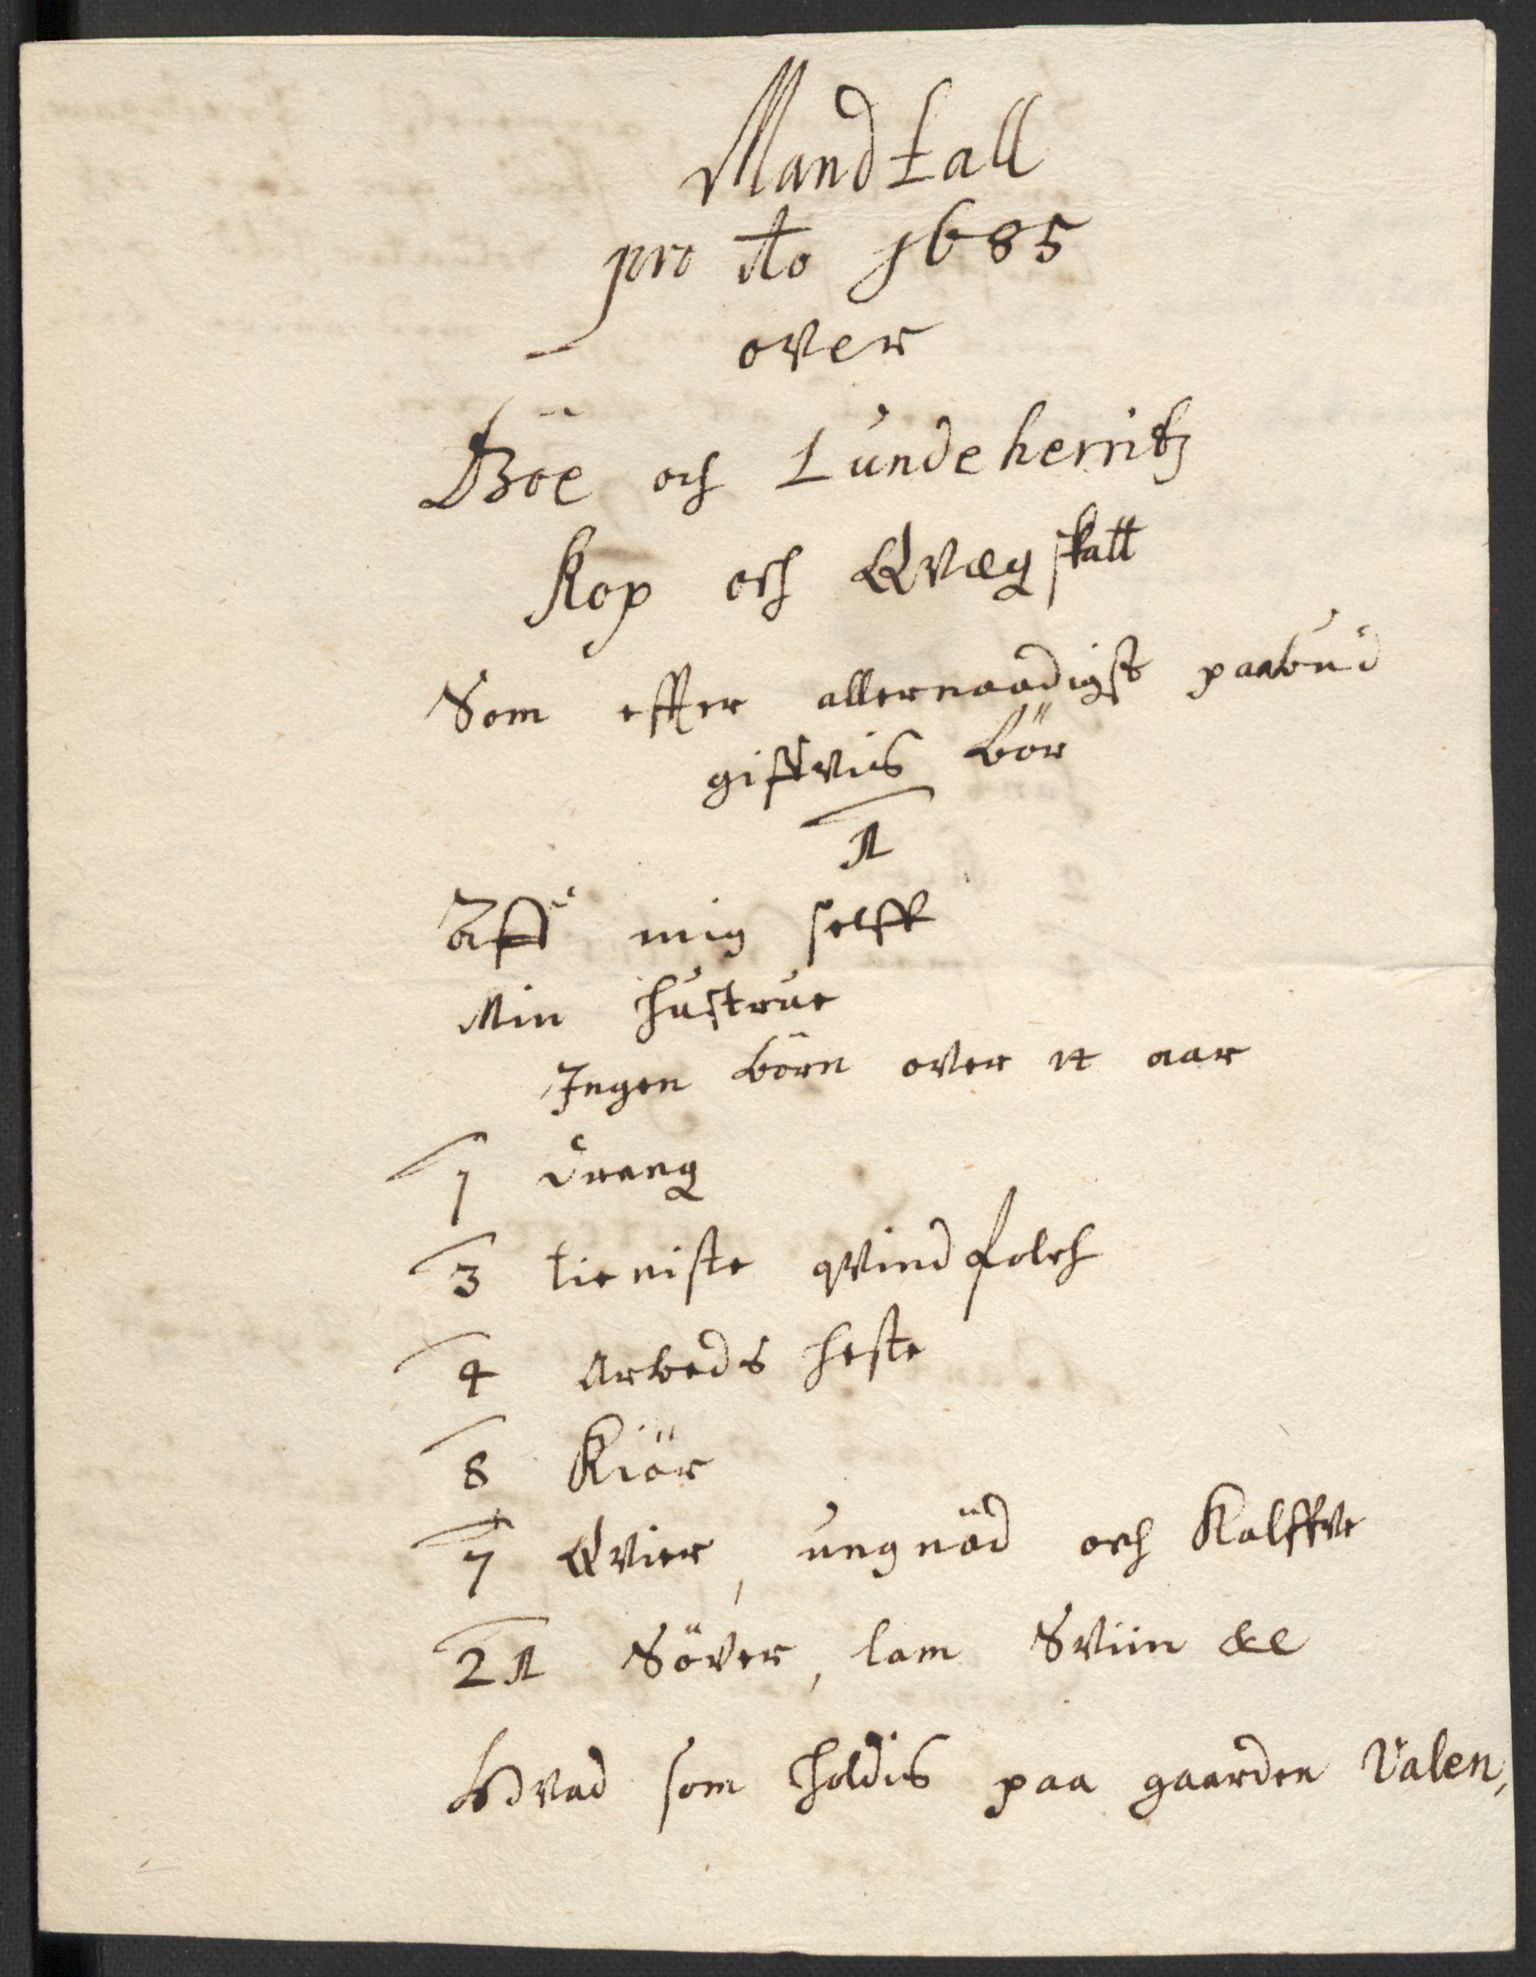 Mandtall
pro Ao 1685
over
Böe och Lundeherritz
Kop och Qvægskatt
Som effter allernaadigst paabud
giffvis bör
1
Aff mig selff
Min hustrue
Ingen börn over 14 aar
1 dreng
3 tieniste qvindfolch
4 Arbeds heste
8 Kiör
7 Qvier, ungnöd och Kalffve
21 Söver, lam Sviin &c
Hvad som holdis paa gaarden Valen,